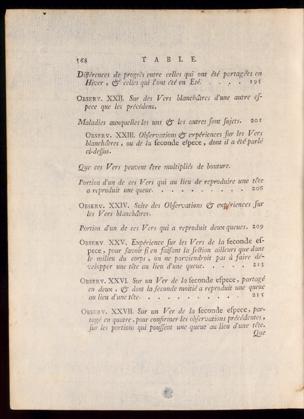 168 TABLE.
Différences de progrès entre celles qui ont été partagées en
Hiver, & celles qui l'ont été en Eté. . . . . 195
OBSERV. XXII. Sur des Vers blanchâtres d'une autre es-
pece que les précédens.
Maladies auxquelles les uns & les autres sont sujets. 201
OBSERV. XXIII. Observations & expériences sur les Vers
blanchâtres, ou de la seconde espece, dont il a été parlé
ci-dessus.
Que ces Vers peuvent être multipliés de bouture.
Portion d'un de ces Vers qui au lieu de reproduire une tête
a reproduit une queue. . . . . . . . . . 206
OBSERV. XXIV. Suite des Observations & expériences sur
les Vers blanchâtres.
Portion d'un de ces Vers qui a reproduit deux queues. 209
OBSERV. XXV. Expérience sur les Vers de la seconde es-
pece, pour savoir si en faisant la section ailleurs que dans
le milieu du corps, on ne parviendroit pas à faire dé-
velopper une tête au lieu d'une queue. . . . . 213
OBSERV. XXVI. Sur un Ver de la seconde espece, partagé
en deux, & dont la seconde moitié a reproduit une queue
au lieu d'une tête. . . . . . . . . . 215
OBSERV. XXVII. Sur un Ver de la seconde espece, par-
tagé en quatre, pour confirmer les observations précédentes,
sur les portions qui poussent une queue au lieu d'une tête.
Que